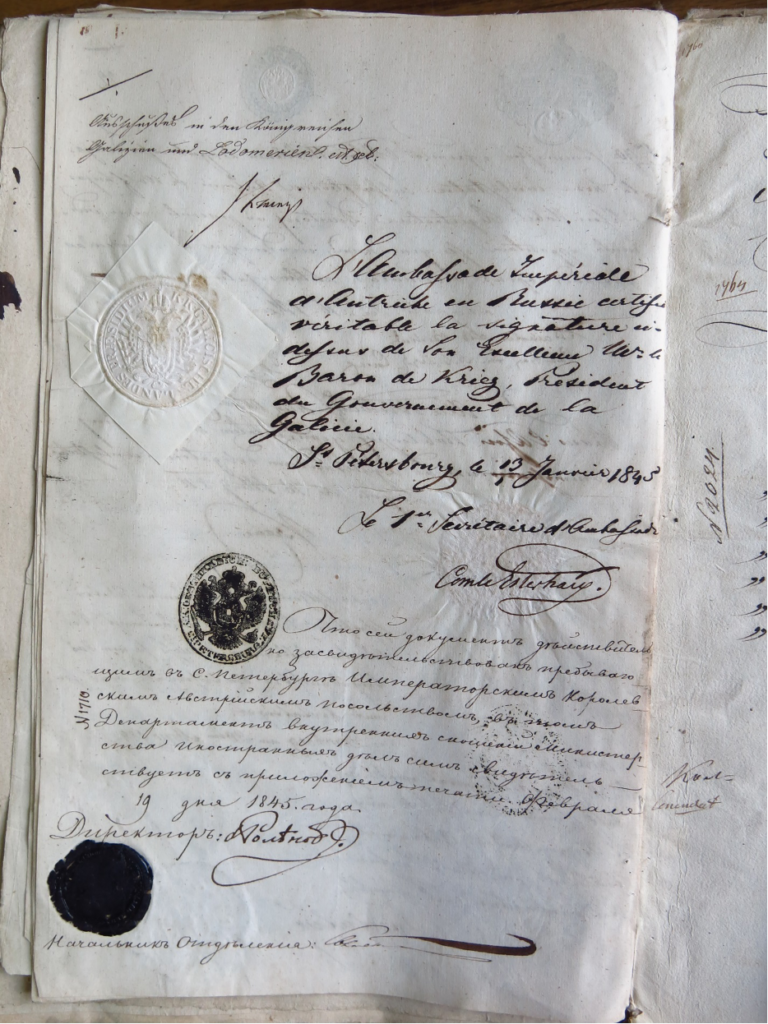 Ausschußes in den Königreichen
Galizien und Lodomerien etc. etc.
Krieg
L'Ambassade Impériale
d'Autriche en Russie certifie
véritable la signature ci-
dessus de Son Excellence Mr le
Baron de Krieg, Président
du Gouvernement de la
Galicie.
St Pétersbourg, le 13/1 Janvier 1845
Le 1er Secrétaire d'Ambassade
Comte Esterházy.
Что сей документъ дѣйствитель
но засвидѣтельствованъ пребываю
щимъ въ С. Петербургѣ Императорскимъ Королев
скимъ Австрійскимъ посольствомъ, въ томъ
Департаментъ внутреннихъ сношеній Министер
ства иностранныхъ дѣлъ симъ свидѣтель-
ствуетъ съ приложеніемъ печати. Февраля
19 дня 1845. года.
N 1710.
Директоръ:
Начальникъ Отдѣленія:
1764
N 2024